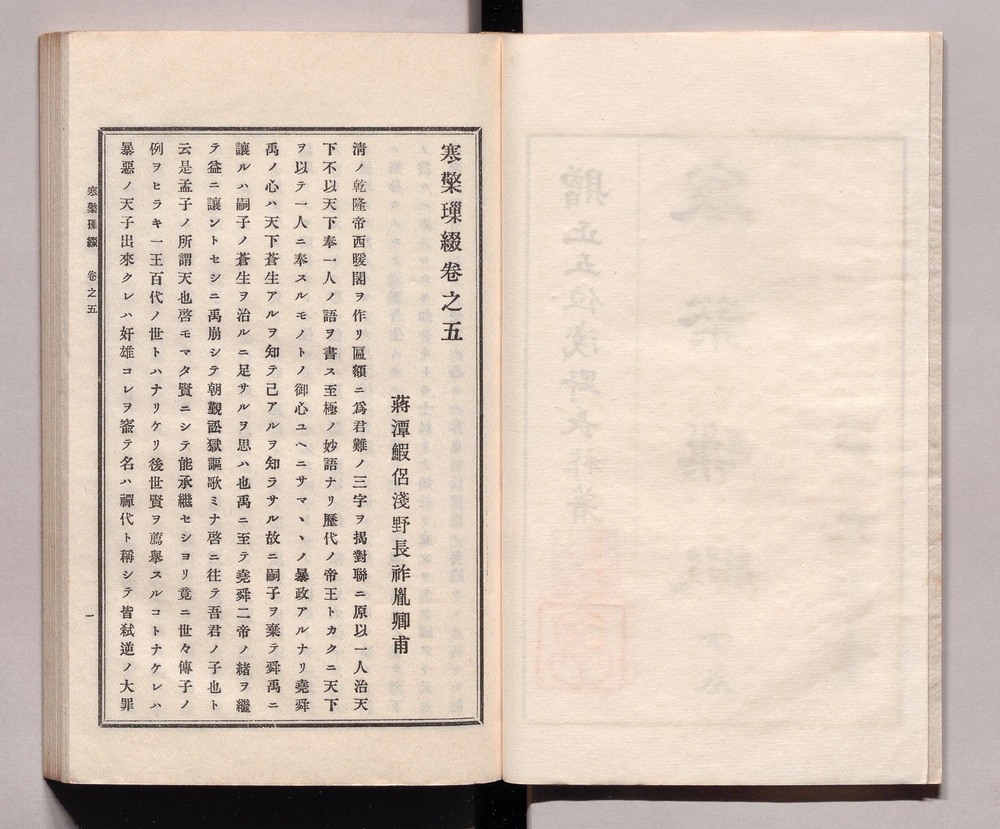 寒檠璅綴卷之五
蔣潭鰕侶淺野長祚胤卿甫
淸ノ乾隆帝西暖閣ヲ作リ匾額ニ爲君難ノ三字ヲ揭對聯ニ原以一人治天
下不以天下奉一人ノ語ヲ書ス至極ノ妙語ナリ歷代ノ帝王トカクニ天下
ヲ以テ一人ニ奉スルモノトノ御心ユヘニサマ〵〵ノ暴政アルナリ堯舜
禹ノ心ハ天下蒼生アルヲ知テ己アルヲ知ラサル故ニ嗣子ヲ棄テ舜禹ニ
讓ルハ嗣子ノ蒼生ヲ治ルニ足サルヲ思ハ也禹ニ至テ堯舜二帝ノ緖ヲ繼
テ益ニ讓ントセシニ禹崩シテ朝覲訟獄謳歌ミナ啓ニ往テ吾君ノ子也ト
云是孟子ノ所謂天也啓モマタ賢ニシテ能承繼セシヨリ竟ニ世々傳子ノ
例ヲヒラキ一王百代ノ世トハナリケリ後世賢ヲ薦擧スルコトナケレハ
暴惡ノ天子出來クレハ奸雄コレヲ簒テ名ハ禪代ト稱シテ皆弑逆ノ大罪
寒檠璅綴 卷之五
一
贈正五位淺野長祚著